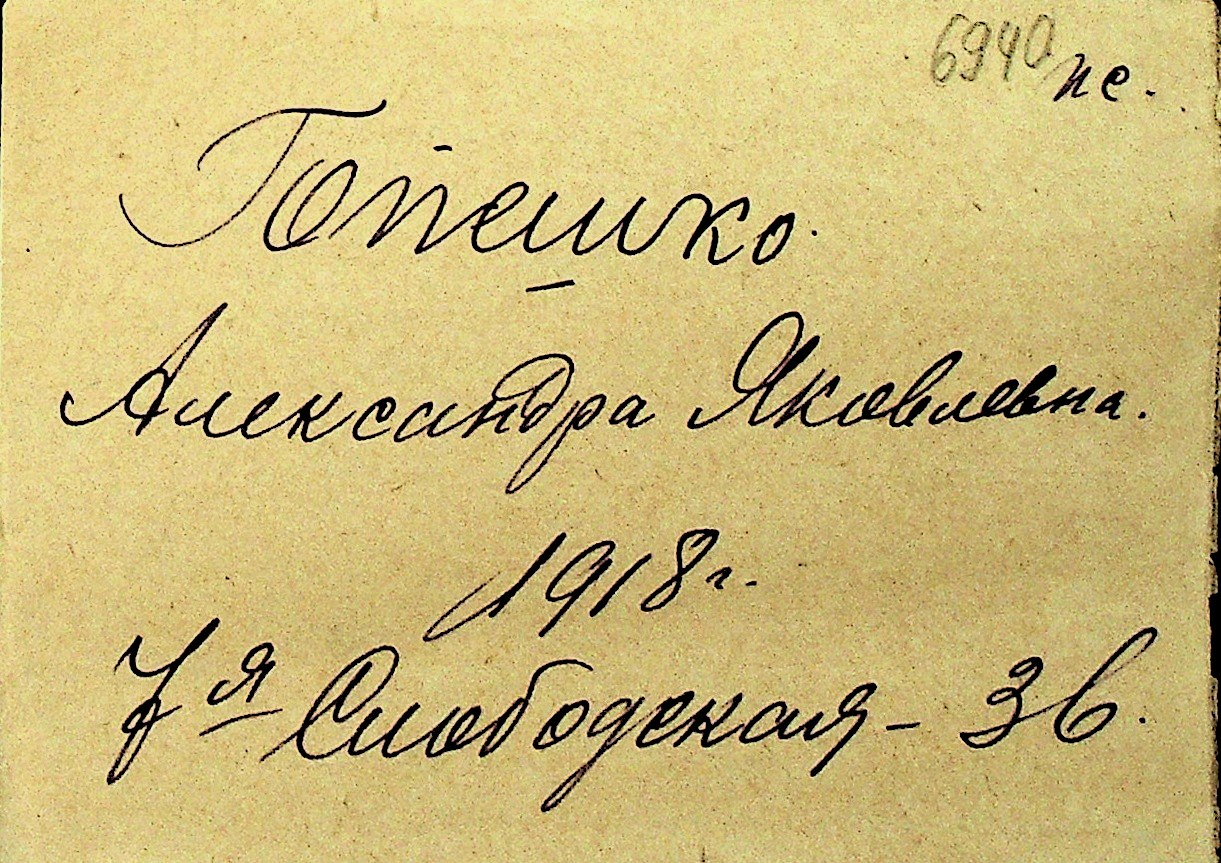 6940 пе.
Гопешко.
Александра Яковлевна.
1918 г.
7я Слободская – 36.